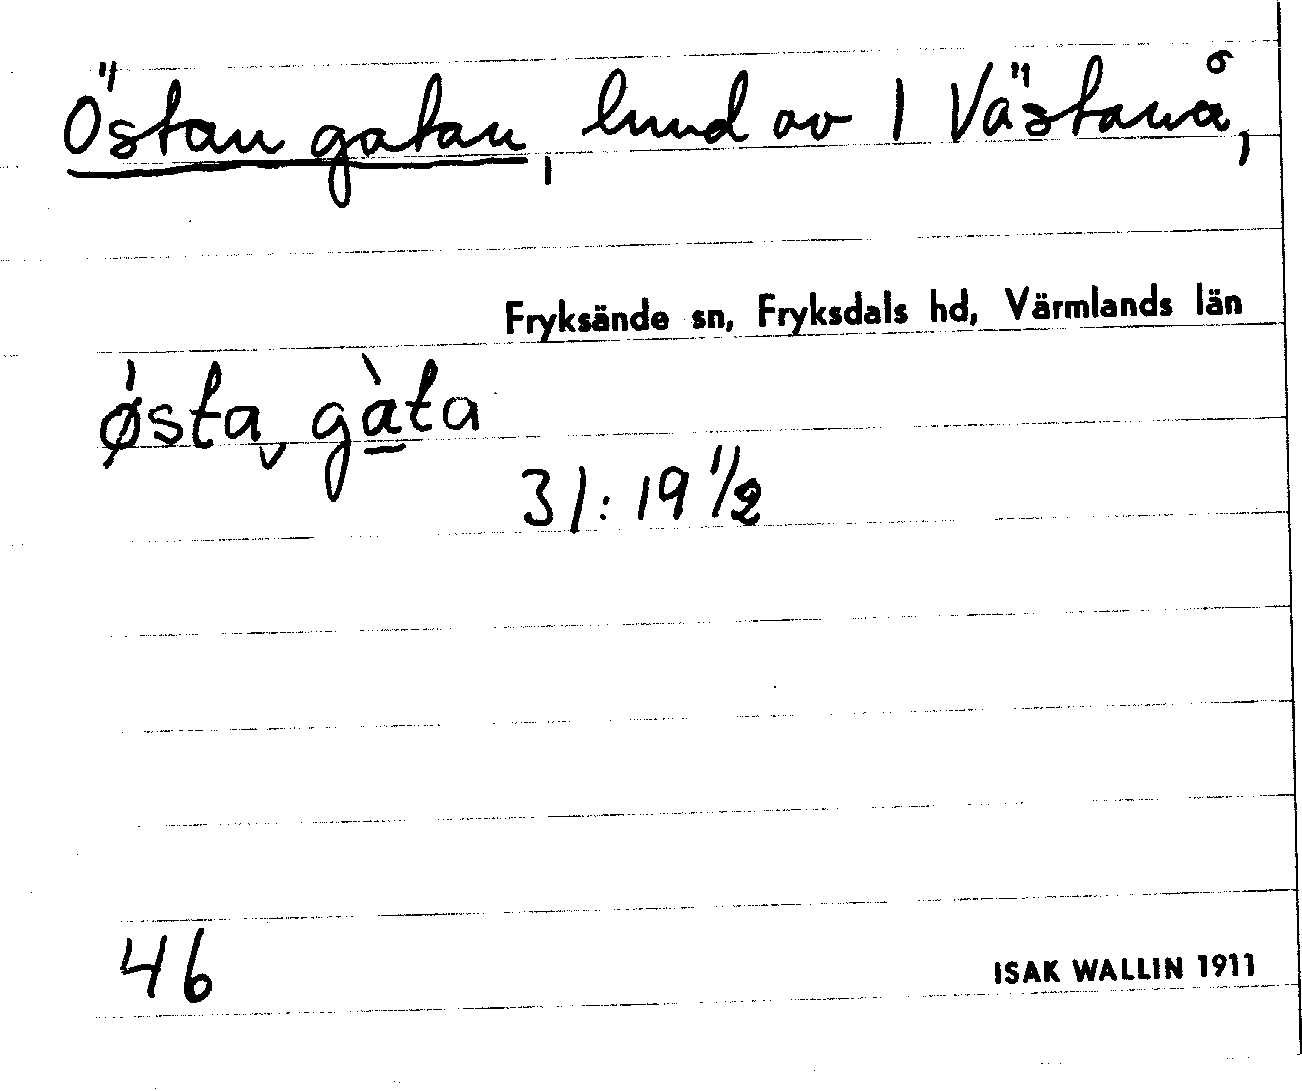 Östan gatan, lund av 1 Västanå,
Fryksände sn, Fryksdals hd, Värmlands län
ǿsta gàta
31:19 1/2
46
ISAK WALLIN 1911